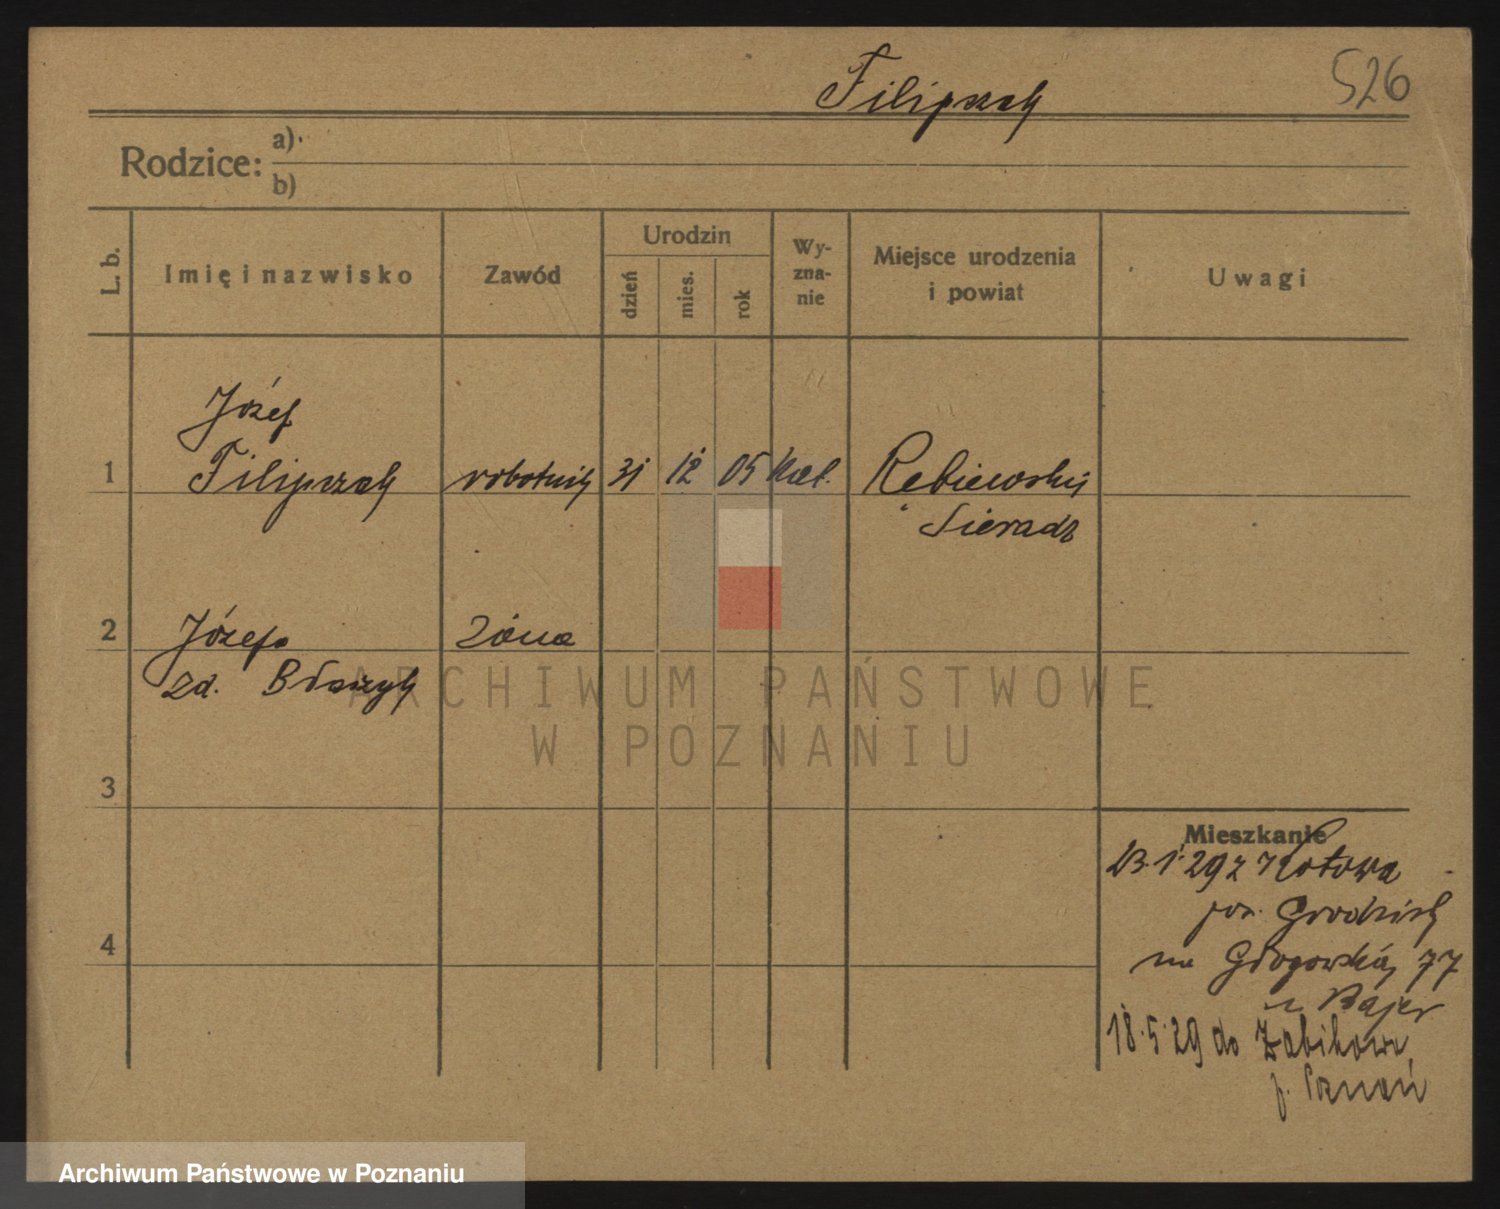 Filipczak
526
Rodzice: a)
b)
L. b.
Imię i nazwisko
Zawód
Urodzin
dzień
mies.
rok
Wy-
zna-
nie
Miejsce urodzenia
i powiat
Uwagi
Józef
1 Filipczak robotnik 31 12 05 kat.
Sieradz
2 Józefa żona
zd. Błaszyk
3
4
Mieszkanie
23.1.29 z Kotowa
pow. Grodzisk
na Głogowską 77
u Bajer
18.5.29 do Żabikowa
p. Poznań
ARCHIWUM PAŃSTWOWE
W POZNANIU
Archiwum Państwowe w Poznaniu